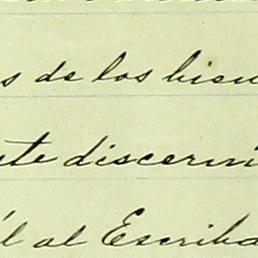 s de los bien
te discerni
l al Escriba